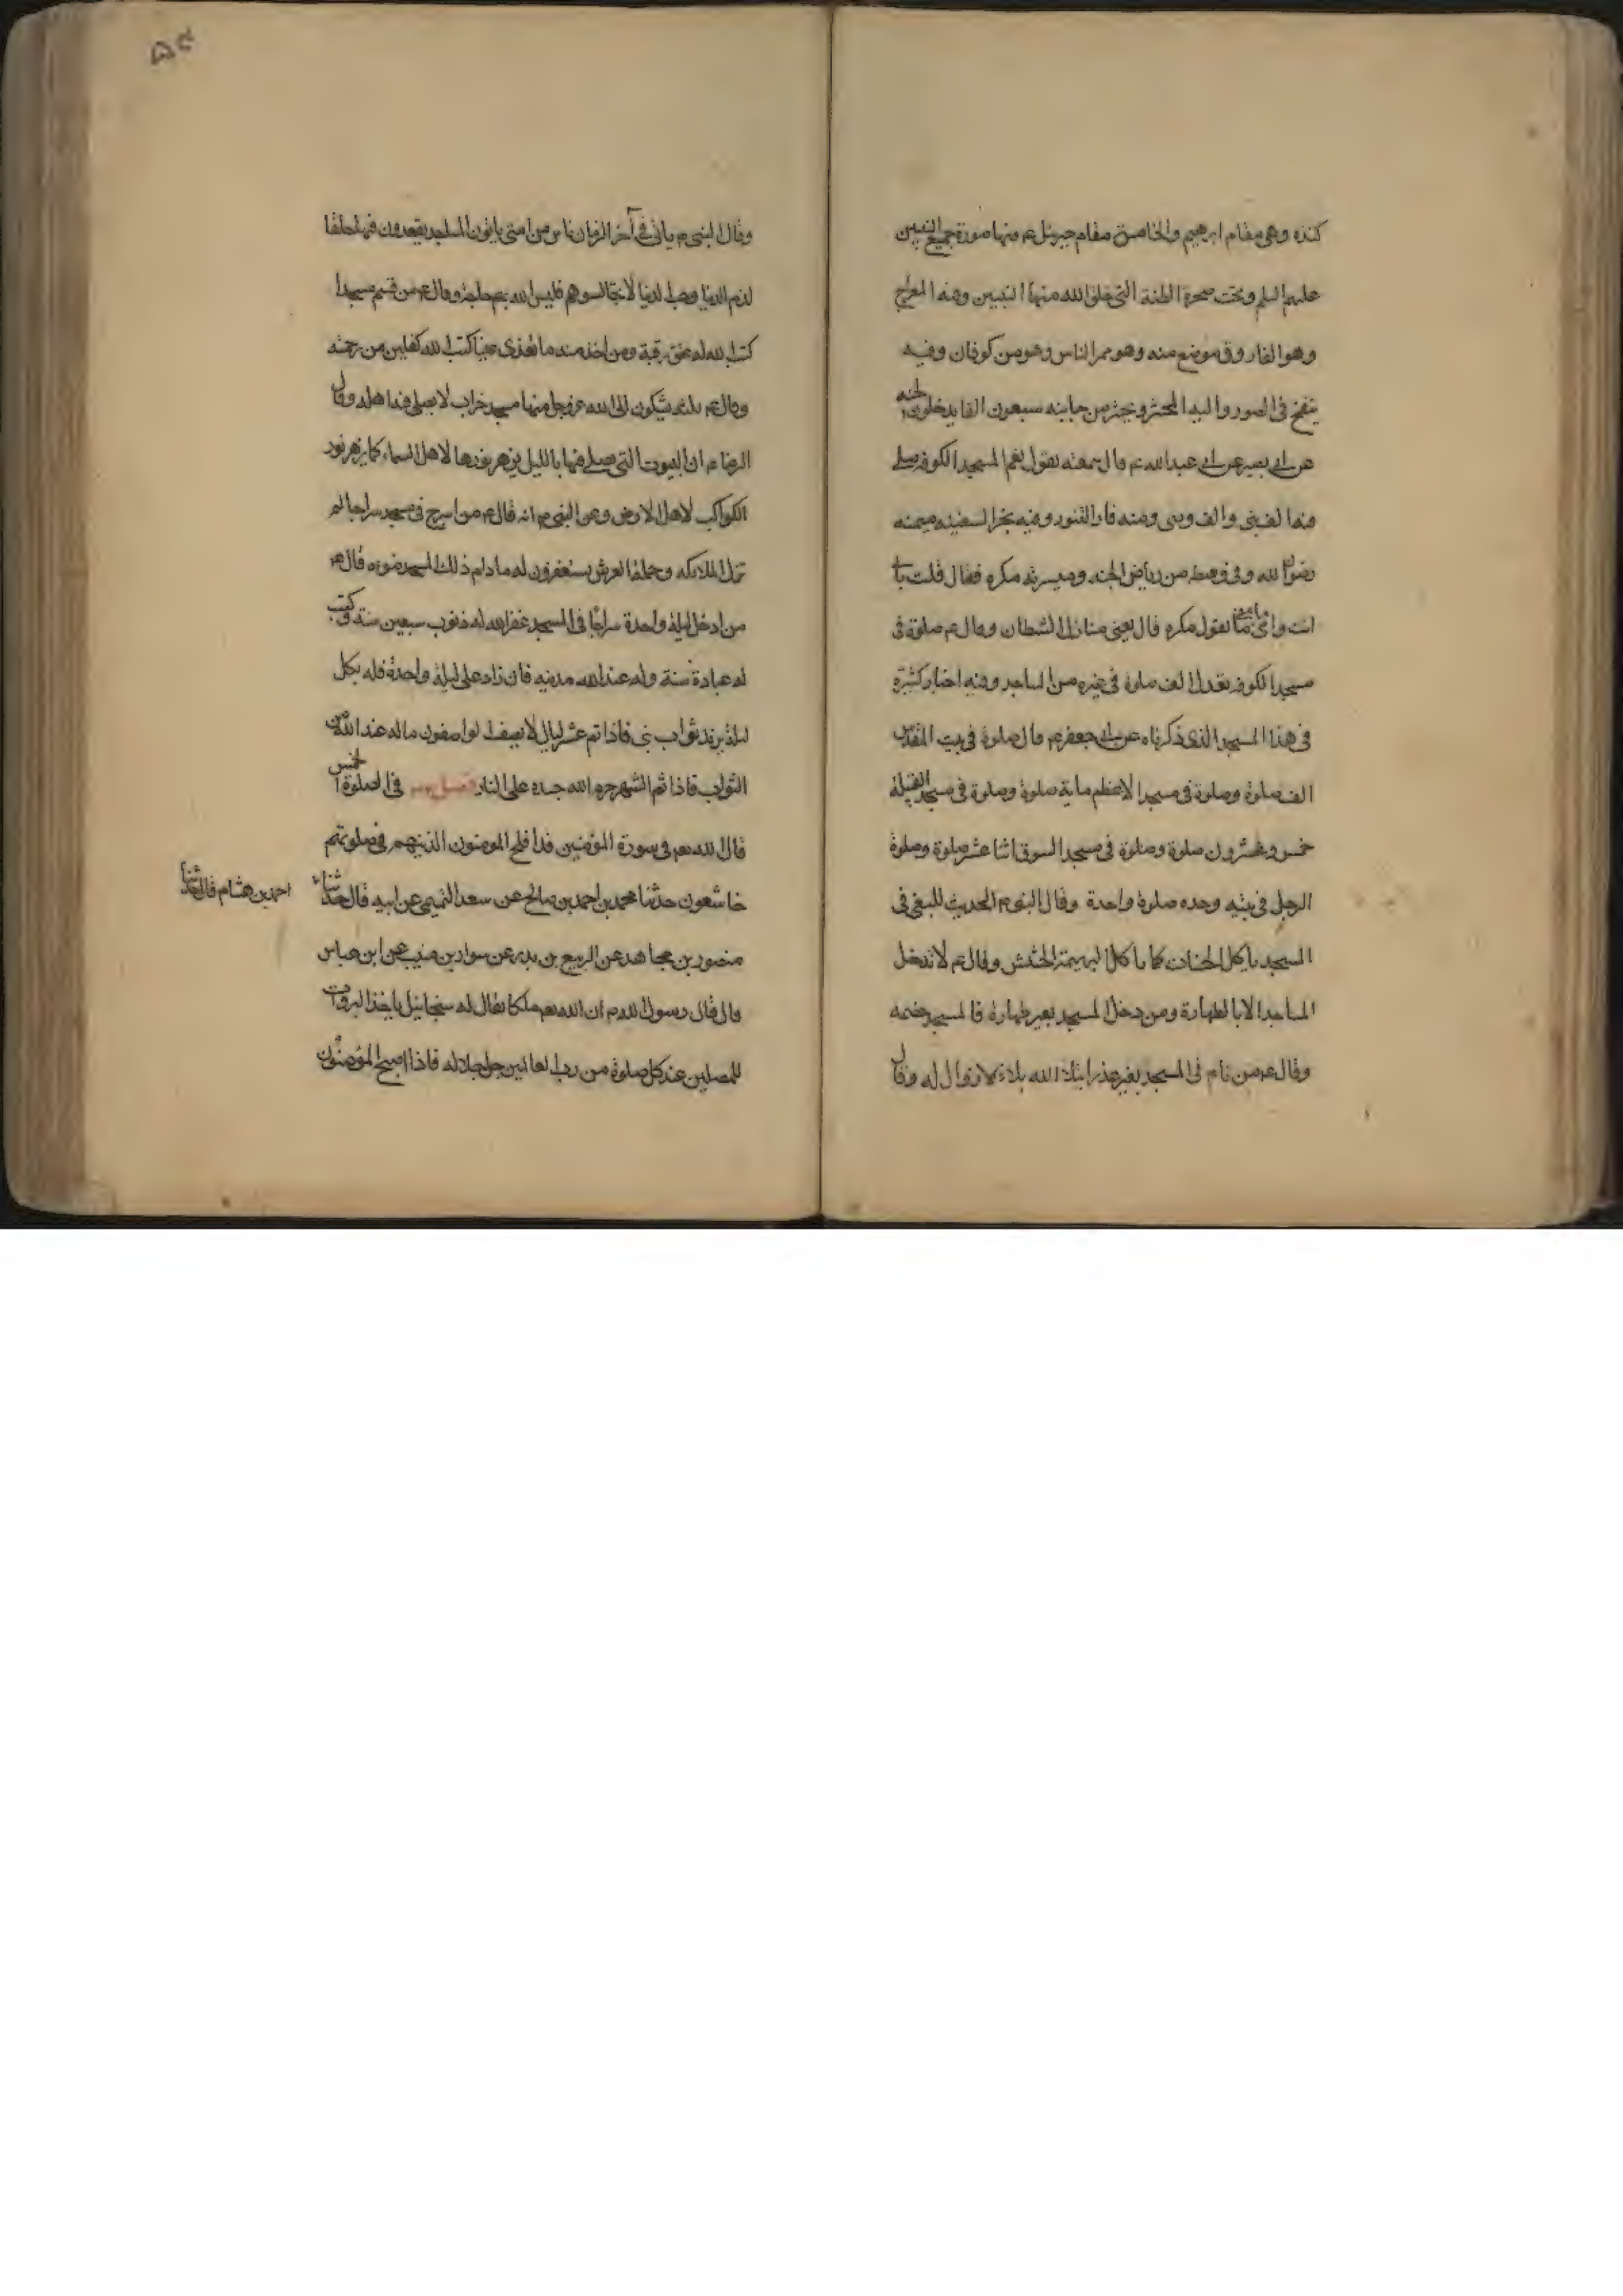 كنده وهى مقام ابرهيم والخامسة مقام جبرئيل عم وفيها صورة جميع النبيين
عليهم السلم وتحت صخرة الطنة التى خلق الله منها النبيين وفيه المعراج
وهو الفاروق موضع منه وهو ممر الناس وهو من كوفان وفيه
ينفخ فى الصور واليه المحشر ويحشر من جانبه سبعون الفا يدخلون الجنه
عن ابى بصير عن ابى عبد الله عم قال سمعته يقول نعم المسجد الكوفه صلى
فيه الف نبى والف وصى ومنه فار التنور وفيه نجر السفينه ميمنه
رضوان الله وفى وسطه من رياض الجنه وميسرته مكره فقال قلت بابى
انت وامى ما تقول مكره قال يعنى منازل الشطان وقال عم صلوة فى
مسجد الكوفه يعدل الف صلوة فى غيره من المساجد وفيه اخبار كثيرة
فى هذا المسجد الذى ذكرناه عن ابى جعفر عم قال صلوة فى بيت المقدس
الف صلوة وصلوة فى مسجد الاعظم ماية صلوة وصلوة فى مسجد القبيلة
خمس وعشرون صلوة وصلوة فى مسجد السوق اثنا عشر صلوة وصلوة
الرجل فى بيته وحده صلوة واحدة وقال النبى م الحديث للبغى فى
المسجد ياكل الحسنات كما ياكل البهيمة الحشش وقال عم لا تدخل
المساجد الا بالطهارة ومن دخل المسجد بغير طهارة فالمسجد خصمه
وقال عم من نام فى المسجد بغير عذر ابتلاه الله بلاء لا زوال له وقال
وقال النبى م ياتى فى آخر الزمان ناس من امتى ياتون المساجد يقعدون فيها حلقا
لذم الدنيا وحب الدنيا لا تجالسوهم فليس لله بهم حاجة وقال عم من قسم مسجدا
كتب الله له عتق رقبة ومن اخذ منه ما تقذى عينا كتب الله كفلين من رحمته
وقال عم ثلثه يشكون الى الله عز وجل منها مسجد خراب لا يصلى فيه اهله وقال
الرضا م ان البيوت التى يصلى فيها بالليل يزهر نورها لاهل السماء كما يزهر نور
الكواكب لاهل الارض وعن النبى م انه قال عم من اسرج فى مسجد سراجا لم
تزل الملائكه وحملة العرش يستغفرون له ما دام ذلك المسجد ضوءه قال عم
من ادخل ليلة واحدة سراجا فى المسجد غفر الله له ذنوب سبعين سنة وكتب
له عبادة سنة وله عند الله مدينه فان زاد على ليلة واحدة فله بكل
ليلة يزيد ثواب نبى فاذا تم عشر ليالى لا يصف الواصفون ما له عند الله من
الثواب فاذا تم الشهر حرم الله جسده على النار فصل فى الصلوة الخمس
قال الله تعم فى سورة المؤمنين قد افلح المومنون الذينهم فى صلوتهم
خاشعون حدثنا محمد بن احمد بن صالح عن سعد التميمى عن ابيه قال حدثنا
احمد بن هشام قال حدثنا
منصور بن مجاهد عن الربيع بن بدر عن سوار بن منيب عن ابن عباس
قال قال رسول الله م ان الله تعم ملكا يقال له سخائيل ياخذ البروات
للمصلين عند كل صلوة من رب العالمين جل جلاله فاذا اصبح المؤمنون